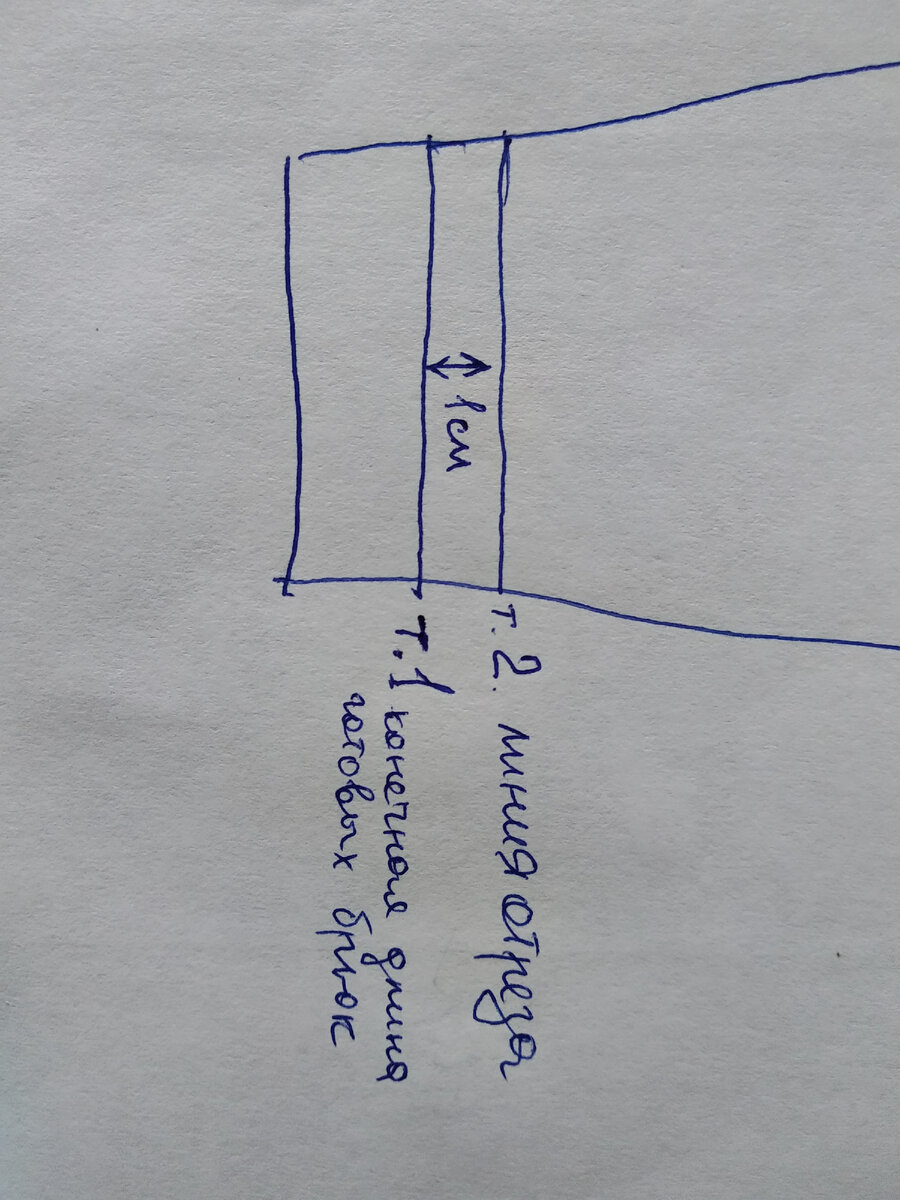 1см
т. 2. линия отреза
т. 1 конечная длина
готовых брюк